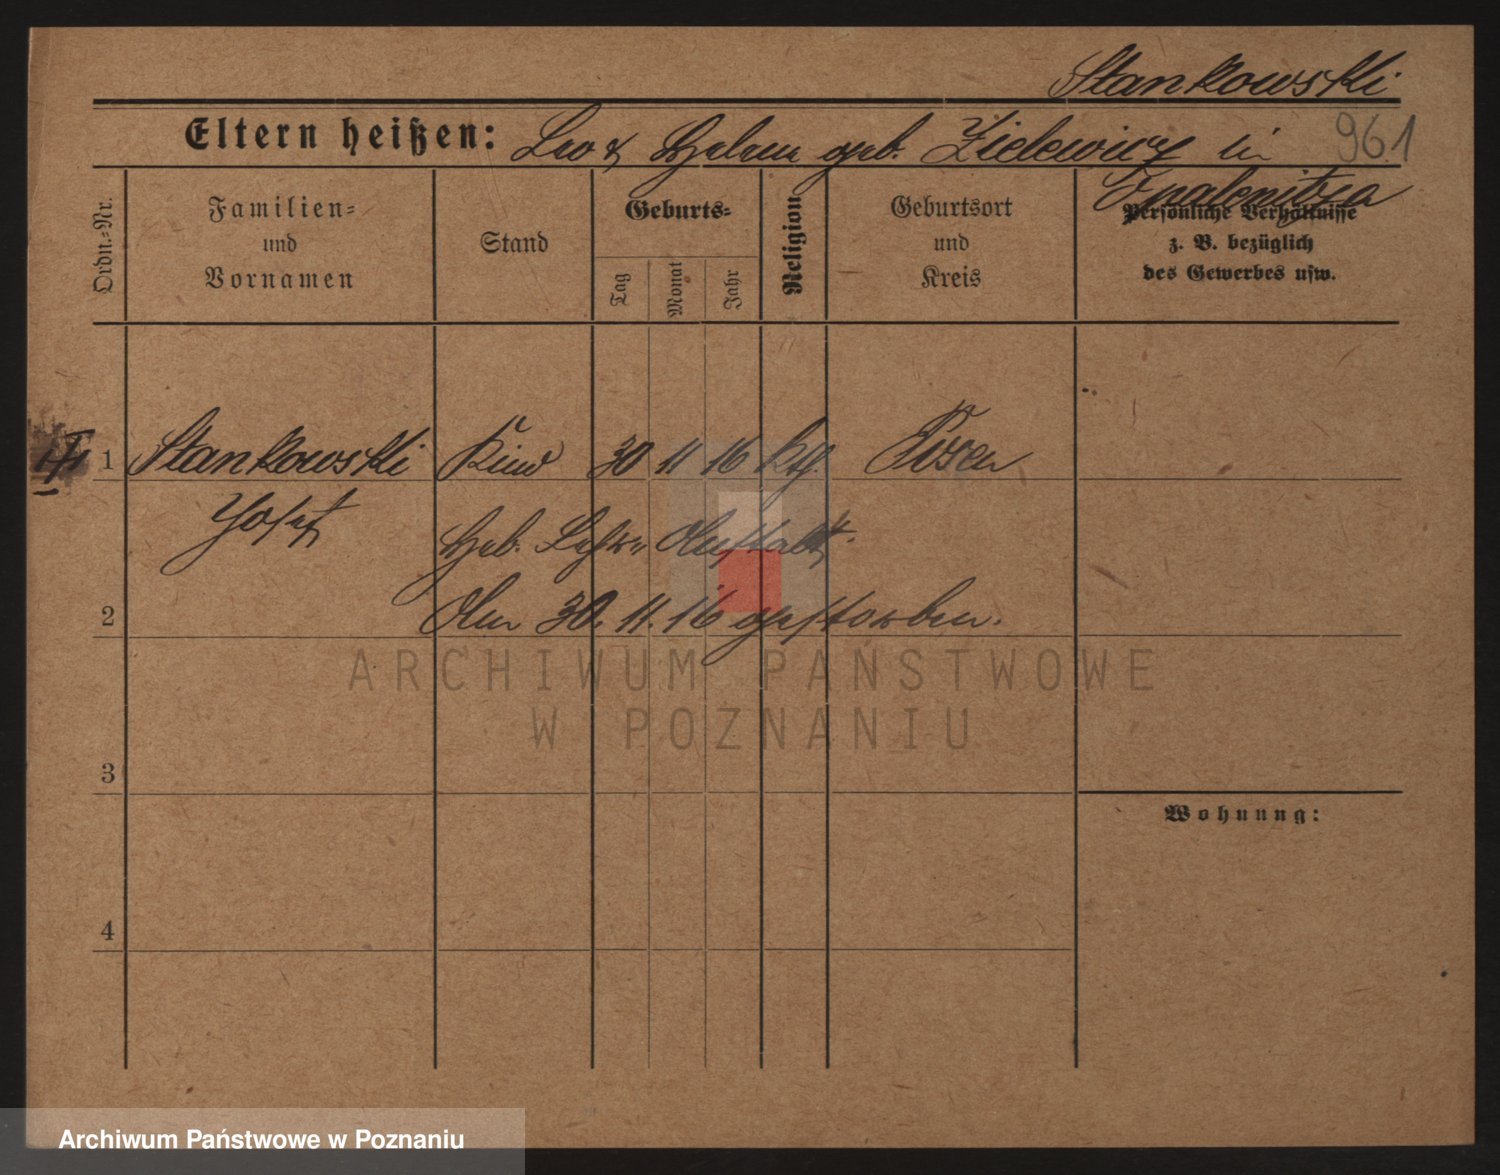 Stankowski
Eltern heißen: Leo & Helene geb. Zielewicz in 961
Opalenitza
Ordn.-Nr.
Familien- und Vornamen
Stand
Geburts-
Tag
Monat
Jahr
Religion
Geburtsort und Kreis
Persönliche Verhältnisse
z. B. bezüglich
des Gewerbes usw.
1 Stankowski Kind 30 11 16 kth. Posen
Josef
Heb. Lehr-Anstalt.
Am 30.11.16 gestorben.
2
ARCHIWUM PAŃSTWOWE
W POZNANIU
3
Wohnung:
4
Archiwum Państwowe w Poznaniu